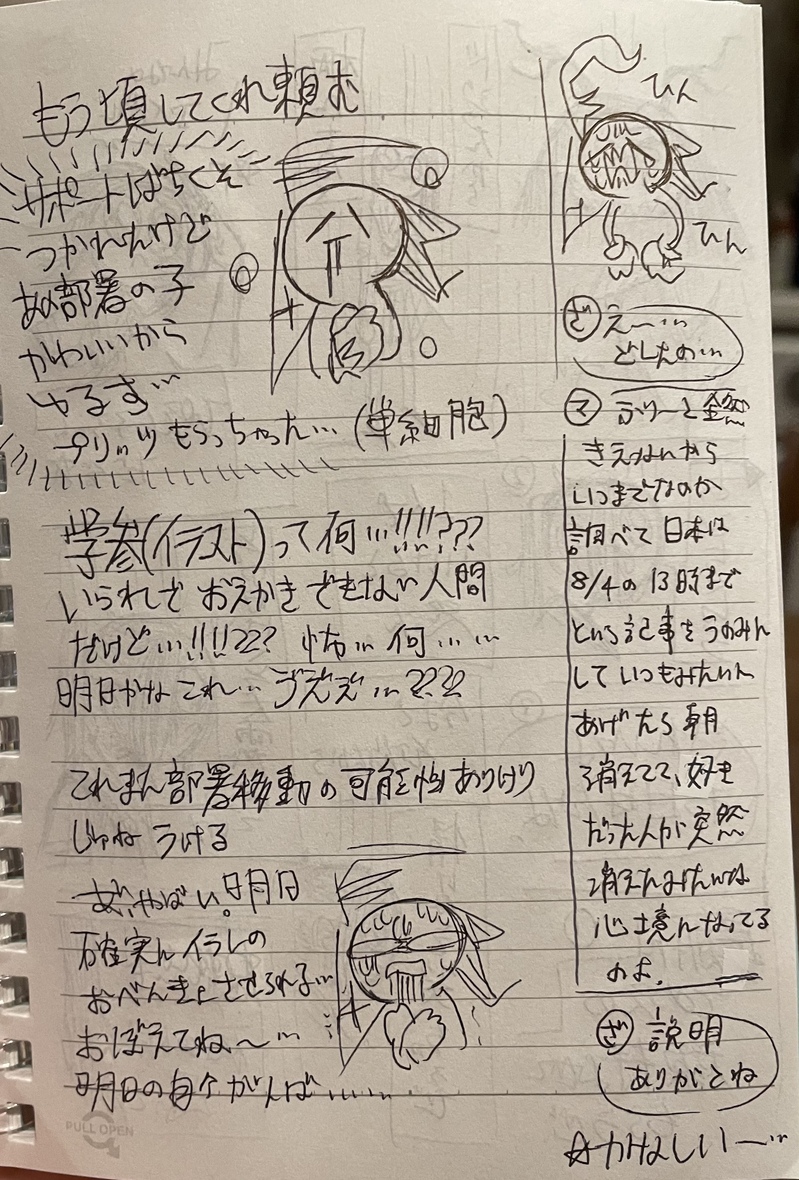 もう頃してくれ頼む
サポートばちくそ
つかれんけど
あの部署の子
かわいいから
ゆるす…
プリッツもらっちゃった…(単細胞)
学参(イラスト)って何…!!!!???
いられしでおえかきでもない人間
だけど…!!!!??? 怖… 何……
明日かなこれ…
これまた部署移動の可能性ありけり
じゃね うける
やばい。明日
確実にイラレの
おべんきょさせられる…
おぼえてね〜…
明日の自分がんば……
PULL OPEN
ひん
ひん
ざ えー…
どしたの…
マ ふりーと全然
きえないから
いつまでなのか
調べて日本は
8/4の13時まで
という記事をうのみに
していつもみたいに
あげたら朝
消えてて、好き
だった人が突然
消えたみたいな
心境になってる
のよ。
ざ 説明
ありがとね
☆かなしいー…